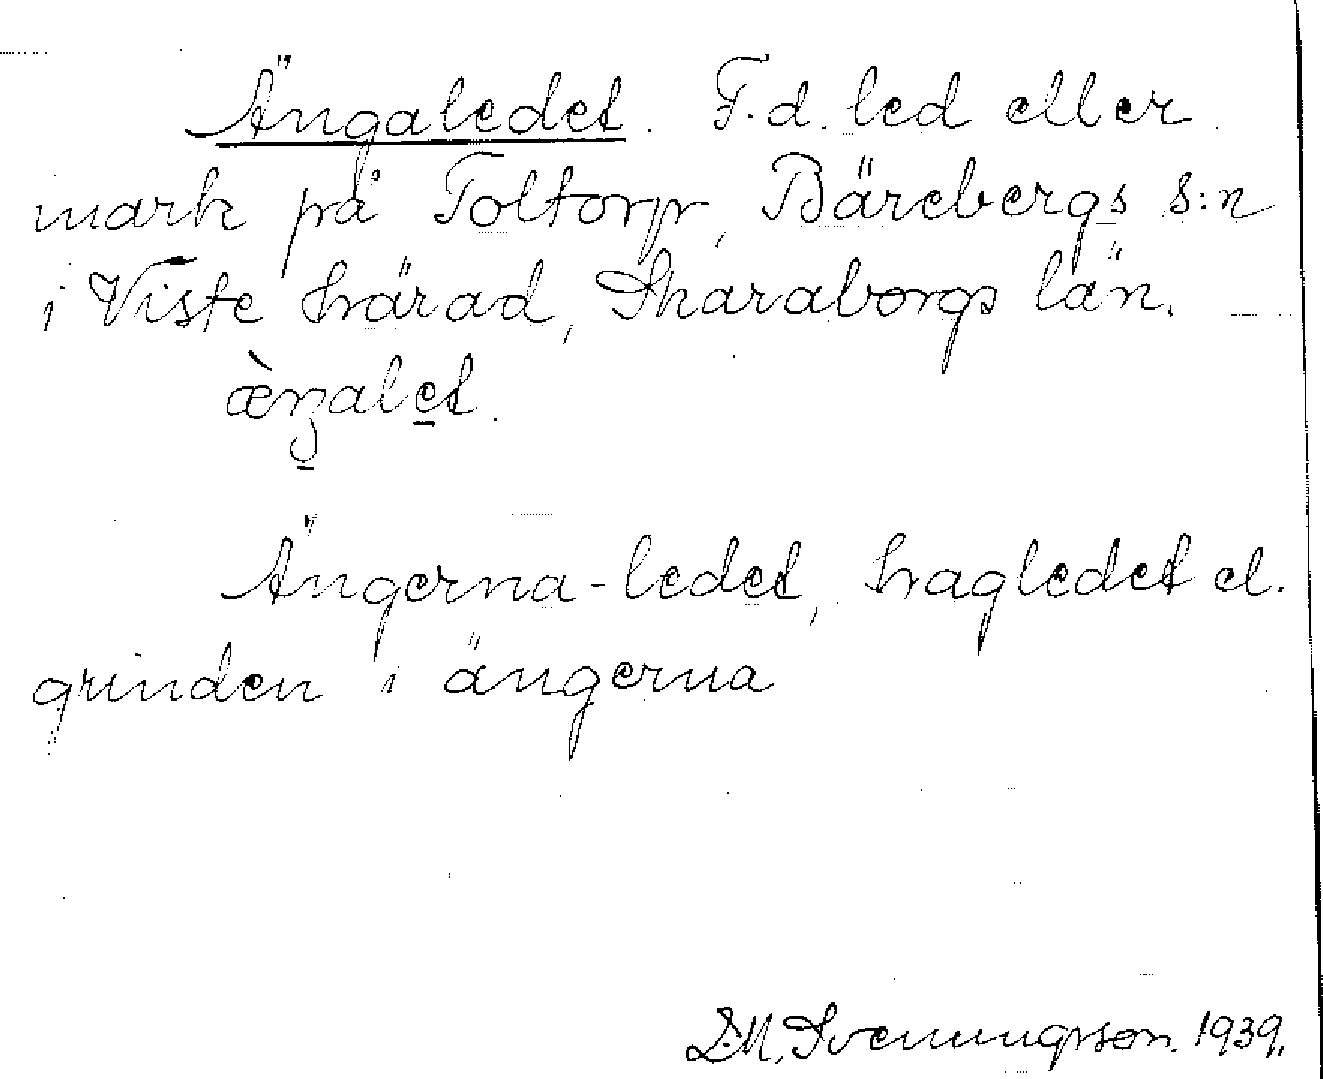 Ängaledet. F.d. led eller
mark på Toltorp, Bärebergs s:n
i Viste härad, Skaraborgs län.
æ̀ŋalet.
Ängerna-ledet, hagledet el.
grinden i ängerna
Svenungsson. 1939.